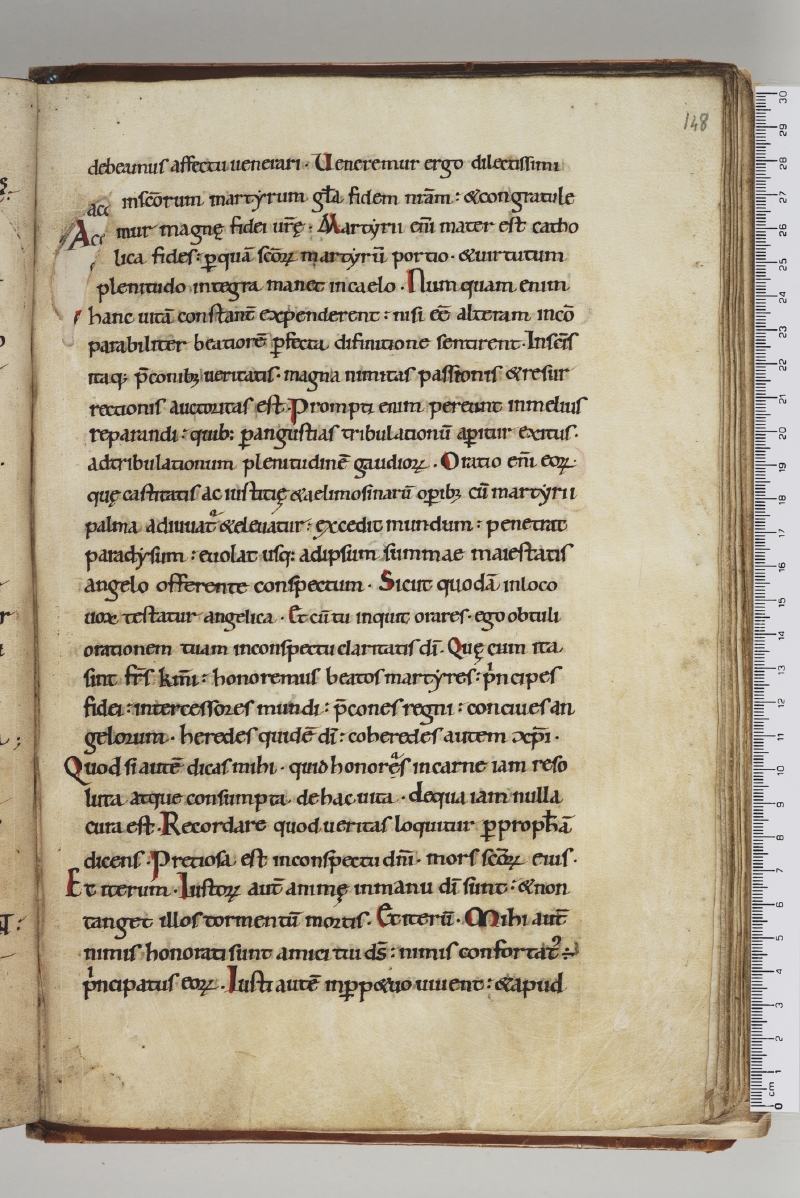 148
debeamus affectu uenerari · Veneremur ergo dilectissimi
acc insc̄orum martyrum gl̄a fidem nr̄am : & congratule
Acc mur magnę fidei ur̄ę : Martyrii eni̅ mater est catho
lica fides : ꝑ quā sc̄oꝝ martyrū portio · & uirtutum
plenitudo integra manet incaelo · Nunquam enim
hanc uitā constant̄ expenderent : nisi ēē alteram incō
parabiliter beatiorē ꝑfecta difinitione sentirent · Insc̄is
itaq; p̄conib; ueritatis · magna nimitas passionis & resur
rectionis auctoritas est · Prompti enim pereunt inmelius
reparandi : quib: ꝑ angustias tribulationū aꝑitur exitus ·
adtribulationum plenitudinē gaudioꝝ · Oratio eni̅ eoꝝ
quę castitatis ac iustitię & aelimosinarū oꝑib; cū martyrii
palma adiuuat̄ & eleuatur : excedit mundum : penetrat
paradysum : euolat usq: adipsum summae maiestatis
angelo offerente conspectum · Sicut quodā inloco
uox testatur angelica · Et cū tu inquit orares · ego obtuli
orationem tuam inconspectu claritatis dī · Quę cum ita
sint fr̄s km̄i : honoremus beatos martyres : pͥncipes
fidei : intercessores mundi : p̄cones regni : conciues an
gelorum · heredes quidē dī : coheredes autem xp̄i ·
Quod si autē dicas mihi · quid honorēs incarne iam reso
luta atque consumpta · de hac uita · dequa iam nulla
cura est · Recordare quod ueritas loquitur ꝑ prophāā
dicens · Pretiosa est inconspectu dn̄i · mors sc̄oꝝ eius ·
Et iterum · Iustoꝝ aut̄ animę inmanu dī sunt : & non
tanget illos tormentū mortis · Et iterū · Mihi aut̄
nimis honorati sunt amici tui ds̄ : nimis confortat᷒ ÷
pͥncipatus eoꝝ · Iusti autē inꝑp&uo uiuent : & apud